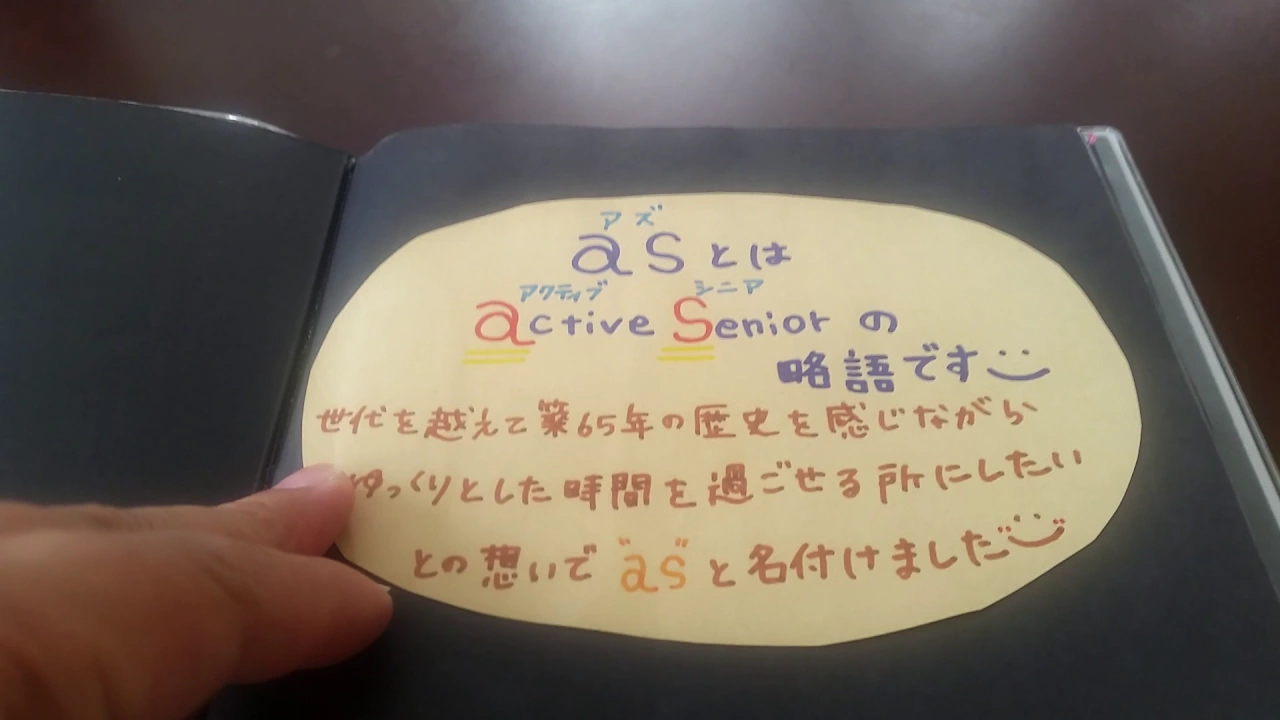 アズ
asとは
アクティブ シニア
active Seniorの
略語です
世代を越えて築65年の歴史を感じながら
ゆっくりとした時間を過ごせる所にしたい
との想いで"as"と名付けました